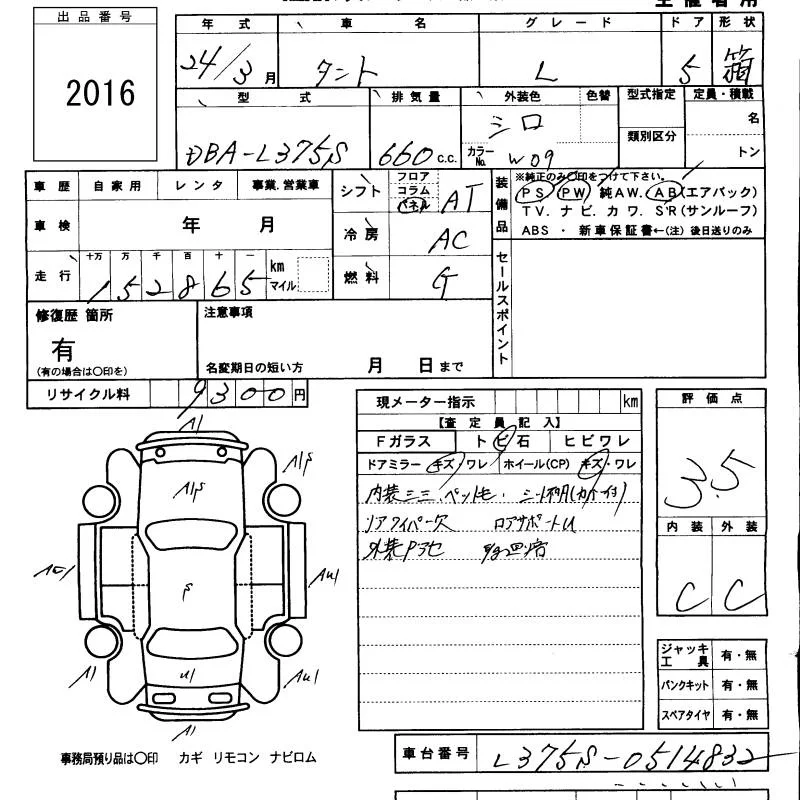 出品番号
2016
年式 車名 グレード ドア 形状
24/3月 タント L 5 箱
型式 排気量 外装色 色替 型式指定 定員・積載
DBA-L375S 660 c.c. シロ 類別区分 名
カラーNo. W09 トン
車歴 自家用 レンタ 事業.営業車
シフト フロア コラム パネル AT
車検 年 月
冷房 AC
走行 十万 万 千 百 十 一 km マイル
152865
燃料 G
装備品 ※純正のみ〇印をつけて下さい。
PS PW 純AW. AB(エアバック)
TV. ナビ. カワ. SR(サンルーフ)
ABS ・ 新車保証書←(注) 後日送りのみ
セールスポイント
修復歴 箇所
有
(有の場合は〇印を)
注意事項
名変期日の短い方 月 日まで
リサイクル料 9300円
現メーター指示 km
【査定員記入】
Fガラス トビ石 ヒビワレ
ドアミラー キズ・ワレ ホイール(CP) キズ・ワレ
リアワイパー欠
評価点
3.5
内装 外装
C C
A1
A1
A1
ジャッキ工具 有・無
パンクキット 有・無
スペアタイヤ 有・無
事務局預り品は〇印 カギ リモコン ナビロム
車台番号 L375S-0514832